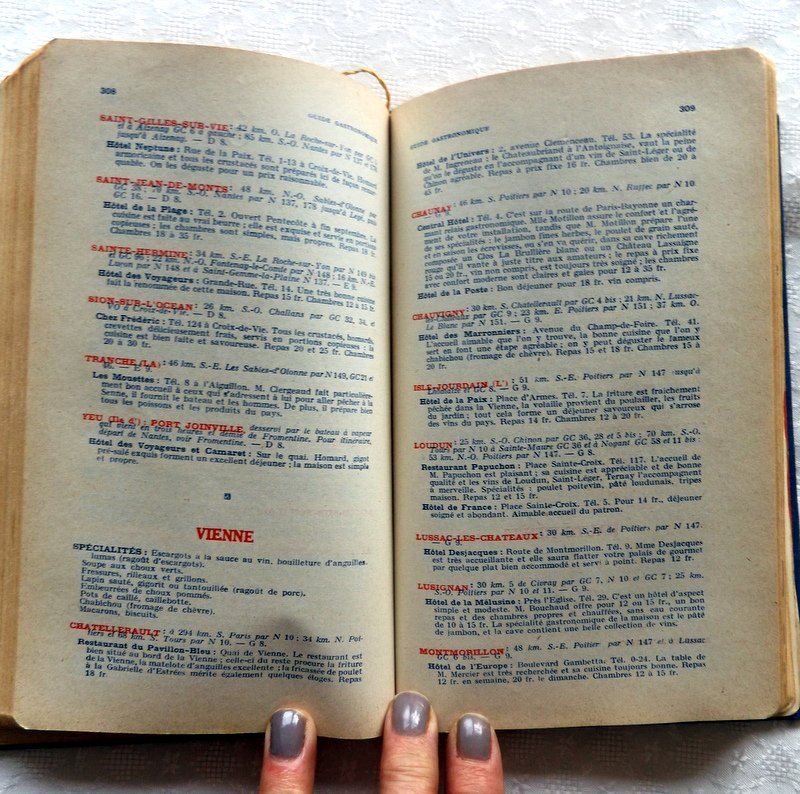 308
GUIDE GASTRONOMIQUE
SAINT-GILLES-SUR-VIE : 42 km. O. La Roche-sur-Yon par GC
et à Aizenay GC 6 à gauche ; 85 km. S.-O. Nantes par N 137 et 178
jusqu'à Aizenay. — D 8.
Hôtel Neptune : Rue de la Paix. Tél. 1-13 à Croix-de-Vie. Homard
armoricaine et tous les crustacés sont préparés ici de façon remar-
quable. On les déguste pour un prix raisonnable.
SAINT-JEAN-DE-MONTS : 48 km. N.-O. Sables-d'Olonne par
GC 38 ; 70 km. S.-O. Nantes par N 137, 178 jusqu'à Legé, puis
GC 16. — D 8.
Hôtel de la Plage : Tél. 2. Ouvert Pentecôte à fin septembre. La
cuisine est faite au vrai beurre ; elle est exquise et servie en portions
copieuses ; les chambres sont simples, mais propres. Repas 18 fr.
Chambres 18 à 35 fr.
SAINTE-HERMINE : 34 km. S.-E. La Roche-sur-Yon par N 149 bis
et GC ; 22 km. N.-O. Fontenay-le-Comte par N 148 ; 15 km. N.-E.
Luçon par N 148 et à Sainte-Gemme-la-Plaine N 137. — E 8
Hôtel des Voyageurs : Grande-Rue. Tél. 14. Une très bonne cuisine
fait la renommée de cette maison. Repas 15 fr. Chambres 12 à 15 fr.
SION-SUR-L'OCEAN : 26 km. S.-O. Challans par GC 32, 34, et
VO à Croix-de-Vie. — D 8.
Chez Frédéric : Tél. 124 à Croix-de-Vie. Tous les crustacés, homards,
crevettes délicieusement frais, servis en portions copieuses ; la
cuisine est bien faite et savoureuse. Repas 20 et 25 fr. Chambres
20 à 30 fr.
TRANCHE (LA) : 46 km. S.-E. Les Sables-d'Olonne par N 149, GC 21 et
46. — E 9.
Les Mouettes : Tél. 8 à l'Aiguillon. M. Clergeaud fait particulière-
ment bon accueil à ceux qui s'adressent à lui pour aller pêcher à la
Senne, il fournit le bateau et les hommes. De plus, il prépare bien
tous les poissons et les produits du pays.
YEU (Ile d') : PORT JOINVILLE, desservi par le bateau à vapeur
qui vient en trois heures et demie de Fromentine. Pour itinéraire,
départ de Nantes, voir Fromentine. — D 8.
Hôtel des Voyageurs et Camaret : Sur le quai. Homard, gigot
pré-salé exquis forment un excellent déjeuner ; la maison est simple
et propre.
VIENNE
SPÉCIALITÉS : Escargots à la sauce au vin, bouilleture d'anguilles,
lumas (ragoût d'escargots).
Soupe aux choux verts.
Fressures, rilleaux et grillons.
Lapin sauté, gigorit ou tantouillée (ragoût de porc).
Embeurrées de choux pommés.
Pots de caillé, caillebotte.
Chabichou (fromage de chèvre).
Macarons, biscuits.
CHATELLERAULT : à 294 km. S. Paris par N 10 ; 34 km. N. Poi-
tiers et 68 km. S. Tours par N 10. — G 8.
Restaurant du Pavillon-Bleu : Quai de Vienne. Le restaurant est
bien situé au bord de la Vienne ; celle-ci du reste procure la friture
de la Vienne, la matelote d'anguilles excellente ; la fricassée de poulet
à la Gabrielle d'Estrées mérite également quelques éloges. Repas
18 fr
309
GUIDE GASTRONOMIQUE
Hôtel de l'Univers : 2, avenue Clemenceau. Tél. 53. La spécialité
de M. Ingreneau : le Chateaubriand à l'Antoignaise, vaut la peine
qu'on le déguste en l'accompagnant d'un vin de Saint-Léger ou de
Chinon agréable. Repas à prix fixe 16 fr. Chambres bien de 20 à
45 fr.
CHAUNAY : 46 km. S. Poitiers par N 10 ; 20 km. N. Ruffec par N 10
— G 9.
Central Hôtel : Tél. 4. C'est sur la route de Paris-Bayonne un char-
mant relais gastronomique. Mlle Motillon assure le confort et l'agré-
ment de votre installation, tandis que M. Motillon prépare l'une
de ses spécialités : le jambon fines herbes, le poulet de grain sauté,
et en saison les écrevisses, ou s'en va quérir, dans sa cave richement
garnie, un Clos La Brullière blanc ou un Château Lassaigne
rouge qu'il vante à juste titre aux amateurs ; le repas à prix fixe
15 ou 20 fr., vin non compris, est toujours très soigné ; les chambres
avec confort moderne sont claires et gaies pour 12 à 35 fr.
Hôtel de la Poste : Bon déjeuner pour 18 fr. vin compris.
CHAUVIGNY : 30 km. S. Chatellerault par GC 4 bis ; 21 km. N. Lussac-
les-Châteaux par GC 9 ; 23 km. E. Poitiers par N 151 ; 37 km. O.
Le Blanc par N 151. — G 9.
Hôtel des Marronniers : Avenue du Champ-de-Foire. Tél. 41.
L'accueil aimable que l'on y trouve, la bonne cuisine que l'on y
sert en font une étape agréable ; on y peut déguster le fameux
chabichou (fromage de chèvre). Repas 15 et 18 fr. Chambres 15 à
20 fr.
ISLE-JOURDAIN (L') : 51 km. S.-E. Poitiers par N 147 jusqu'à
GC 8. — G 9.
Hôtel de la Paix : Place d'Armes. Tél. 7. La friture est fraichement
pêchée dans la Vienne, la volaille provient du poulailler, les fruits
du jardin ; tout cela forme un déjeuner savoureux qui s'arrose
des vins du pays. Repas 14 fr. Chambres 12 à 20 fr.
LOUDUN : 25 km. S.-O. Chinon par GC 36, 28 et 5 bis ; 70 km. S.-O.
Tours par N 10 à Sainte-Maure GC 36 et à Nogant GC 58 et 11 bis ;
53 km. N.-O. Poitiers par N 147. — G 8.
Restaurant Papuchon : Place Sainte-Croix. Tél. 117. L'accueil de
M. Papuchon est plaisant ; sa cuisine est appréciable et de bonne
qualité et les vins de Loudun, Saint-Léger, Ternay l'accompagnent
à merveille. Spécialités : poulet poitevin, pâté loudunais, tripes
maison. Repas 12 et 15 fr.
Hôtel de France : Place Sainte-Croix. Tél. 5. Pour 14 fr., déjeuner
soigné et abondant. Aimable accueil du patron.
LUSSAC-LES-CHATEAUX : 30 km. S.-E. de Poitiers par N 147.
— G 9.
Hôtel Desjacques : Route de Montmorillon. Tél. 9. Mme Desjacques
est très accueillante et elle saura flatter votre palais de gourmet
par quelque plat bien accommodé et servi à point. Repas 12 fr.
LUSIGNAN : 30 km. S de Civray par GC 7, N 10 et GC 7 ; 25 km.
S.-O. Poitiers par N 10 et 11. — G 9.
Hôtel de la Mélusine : Près l'Eglise. Tél. 29. C'est un hôtel d'aspect
simple et modeste. M. Bouchaud offre pour 12 ou 15 fr., un bon
repas et des chambres propres et chauffées, sans eau courante
de 10 à 15 fr. La spécialité gastronomique de la maison est le pâté
de jambon, et la cave contient une belle collection de vins.
MONTMORILLON : 48 km. S.-E. Poitiers par N 147 et à Lussac
GC 6 bis. — G 9.
Hôtel de l'Europe : Boulevard Gambetta. Tél. 0-24. La table de
M. Mercier est très recherchée et sa cuisine toujours bonne. Repas
12 fr. en semaine, 20 fr. le dimanche. Chambres 12 à 15 fr.